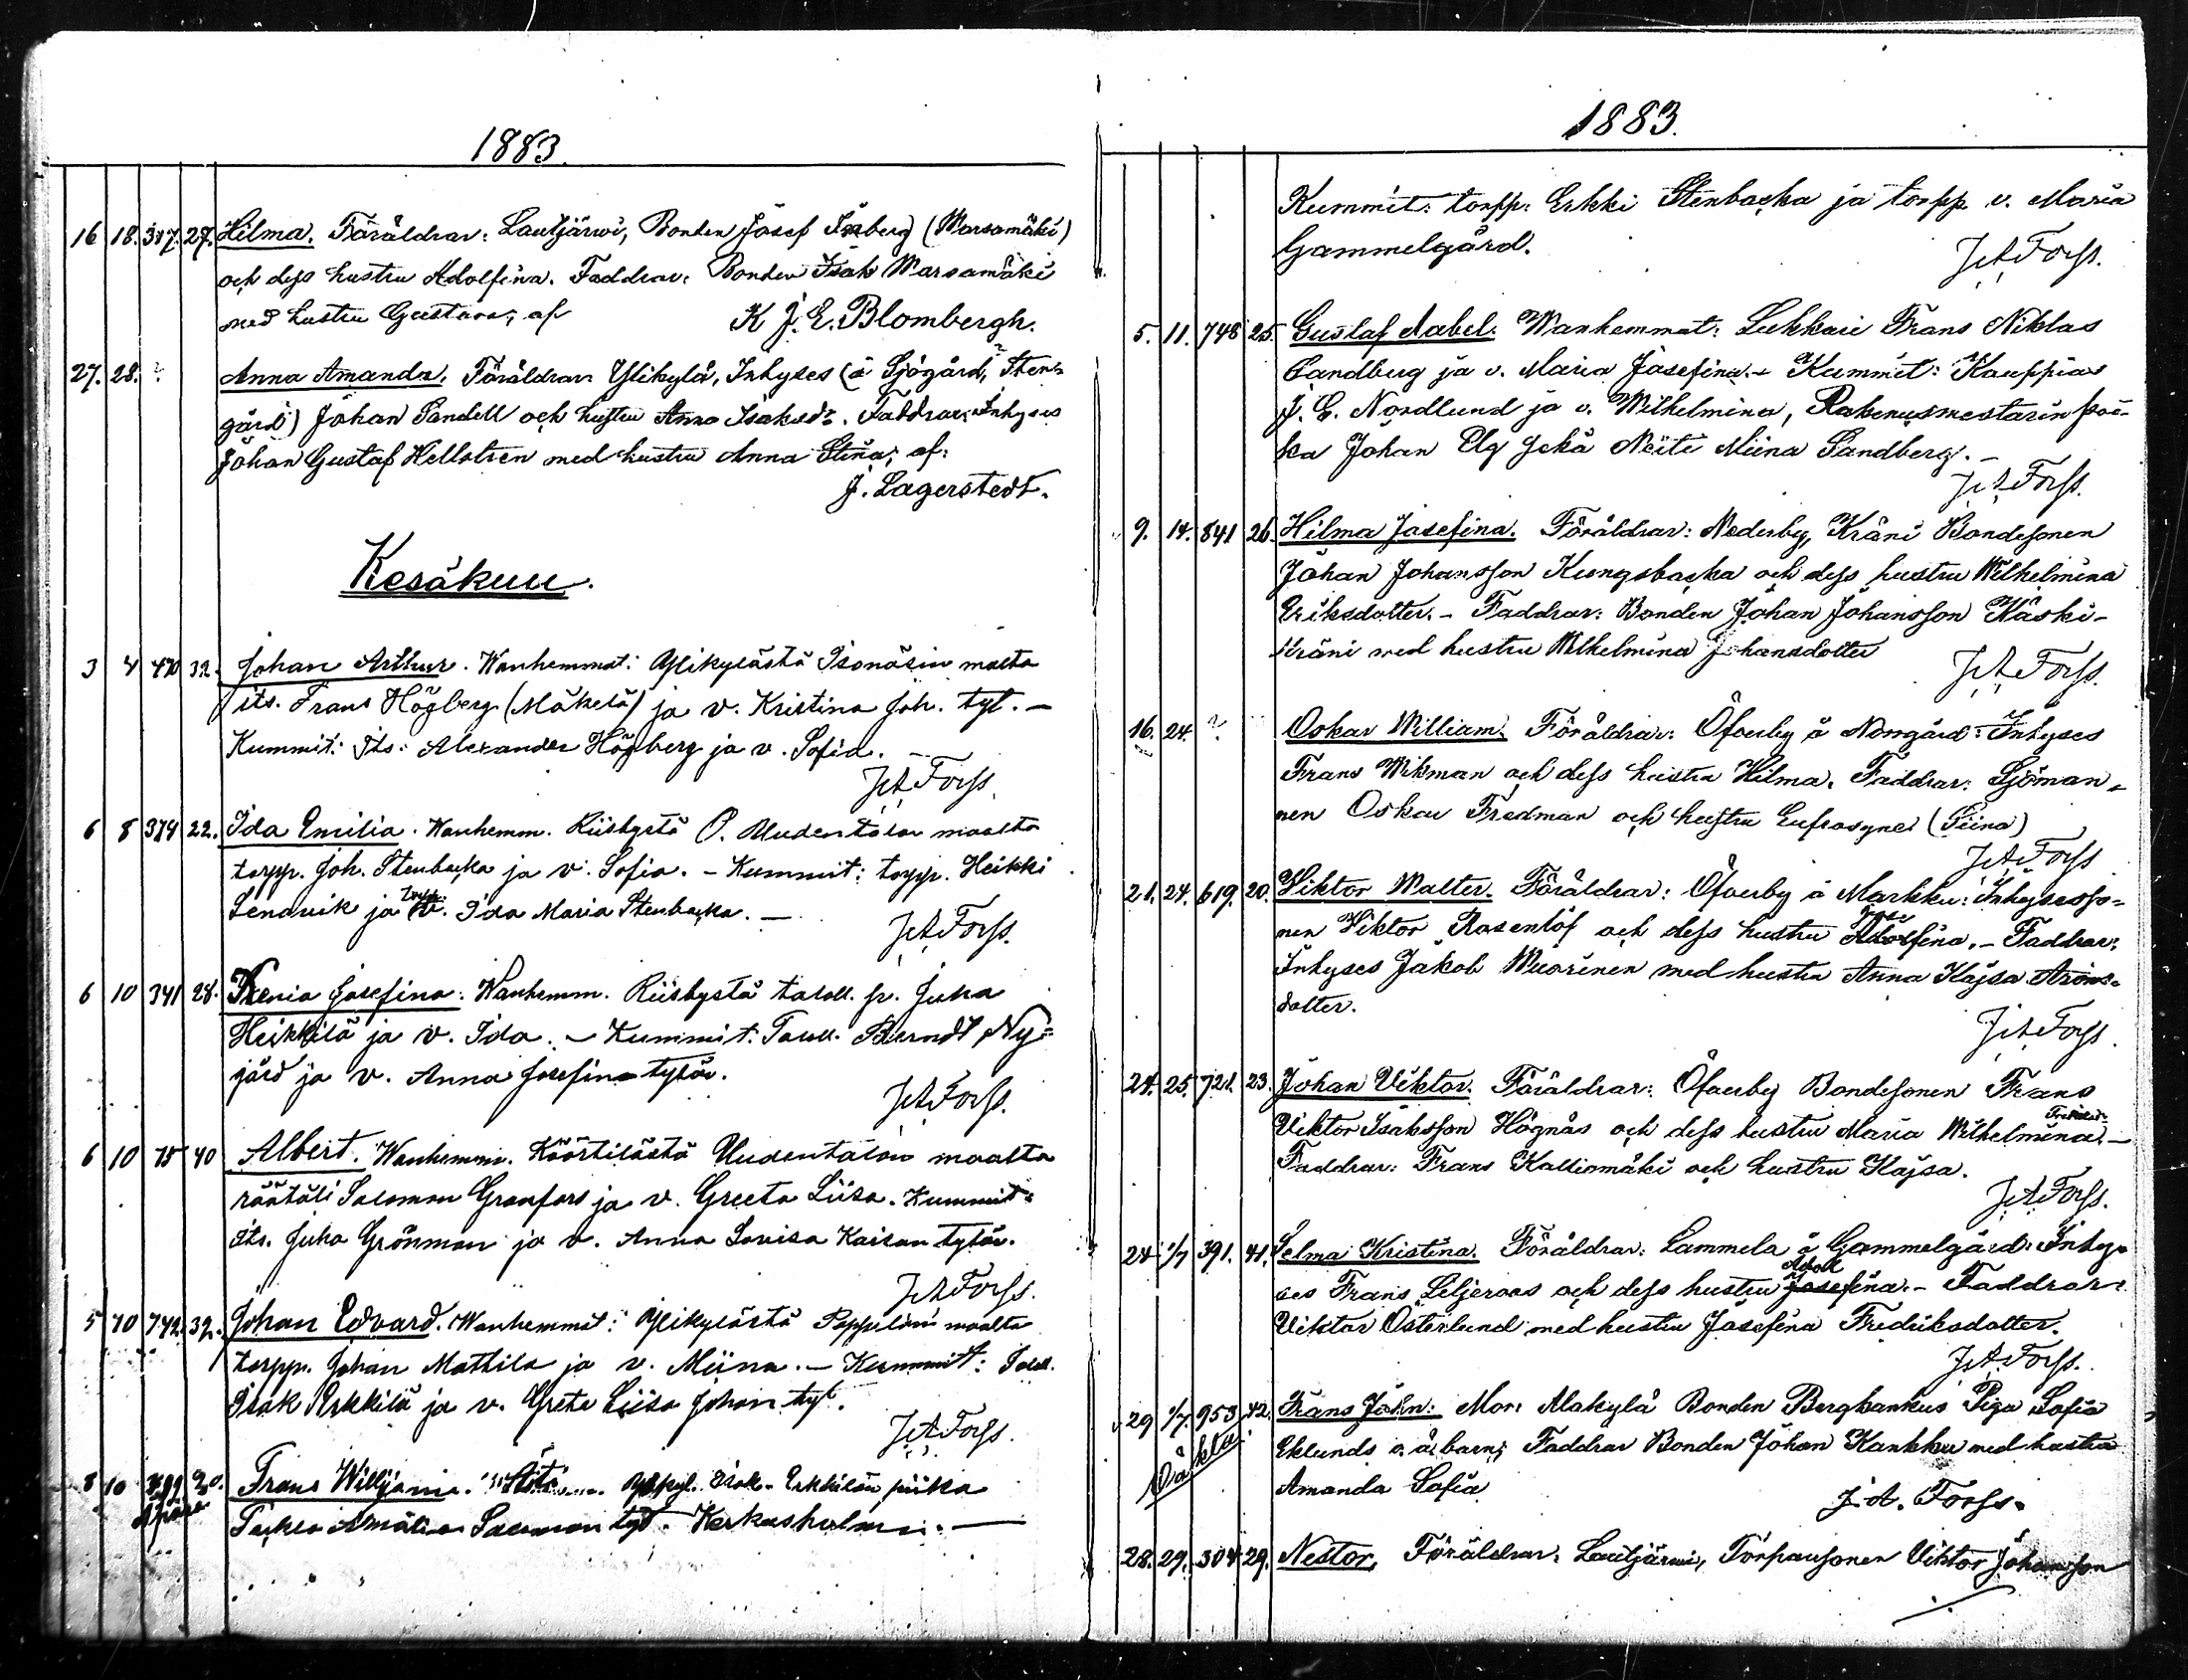 1883.
16 18. 317. 27. Hilma. Föräldrar: Lautjärwi, Bonden Josef Isberg (Warsamäki)
och dess hustru Adolfina. Faddrar: Bonden Isak Warsamäki
med hustru Gustava; af K J. E. Blombergh.
27. 28. ? Anna Amanda. Föräldrar: Ylikylä, Inhyses (å Sjögård, Sten-
gård) Johan Sandell och hustru Anna Isaksdr. Faddrar: Inhyses
Johan Gustaf Hellsten med hustru Anna Stina; af:
J. Lagerstedt.
Kesäkuu.
3 4 470 32. Johan Arthur. Wanhemmat: Ylikylästä Isonäsin maalta
its. Frans Högberg (Mäkelä) ja v. Kristina Joh. tyt. —
Kummit: Its. Alexander Högberg ja v. Sofia. —
J.A. Forss.
6 8 374 22. Ida Emilia. Wanhemm. Riisbystä P. Uudentalon maalta
torpp. Joh. Stenbacka ja v. Sofia. – Kummit: torpp. Heikki
Lenqvik ja torpp. v. Ida Maria Stenbacka. —
J.A. Forss.
6 10 341 28. Xenia Josefina. Wanhemm. Riisbystä taloll. p. Juha
Heikkilä ja v. Ida. – Kummit: Taloll. Berndt Ny-
gård ja v. Anna Josefina tytär.
J.A. Forss.
6 10 75 40 Albert. Wanhemm. Köörtilästä Uudentalon maalta
räätäli Salomon Granfors ja v. Greeta Liisa. Kummit:
its. Juha Grönman ja v. Anna Lovisa Kaisan tytär.
J.A. Forss.
5 10 742. 32. Johan Edvard. Wanhemmat: Ylikylästä Pappilan maalta
torpp. Johan Mattila ja v. Miina. – Kummit: Taloll.
Isak Erkkilä ja v. Greta Liisa Johan tyt.
J.A. Forss.
8 10 20. Frans Willjami. Äiti Ylikyl. Isak Erkkilän piika
Tekla Amalia Salomon tyt. Kerkusholm. —
1883.
Kummit: torpp. Erkki Stenbacka ja torpp. v. Maria
Gammelgård.
J.A. Forss.
5. 11. 748 25. Gustaf Aabel. Wanhemmat: Lukkari Frans Niklas
Sandberg ja v. Maria Josefina. – Kummit: Kauppias
J. E. Nordlund ja v. Wilhelmina, Rakenusmestarin poi-
ka Johan Elg sekä Neiti Miina Sandberg. –
J.A. Forss.
9. 14. 841 26. Hilma Josefina. Föräldrar: Nederby, Kräni Bondesonen
Johan Johansson Kungsbacka och dess hustru Wilhelmina
Eriksdotter. – Faddrar: Bonden Johan Johansson Käski-
Kräni med hustru Wilhelmina Johansdotter
J.A. Forss.
16. 24. ? Oskar William. Föräldrar: Öfverby å Norrgård: Inhyses
Frans Wikman och dess hustru Hilma. Faddrar: Sjöman-
nen Oskar Fredman och hustru Eufrosyne (Siina)
J.A. Forss
21. 24. 619. 20. Viktor Walter. Föräldrar: Öfverby å Markku: Inhysesso-
nen Viktor Rosenlöf och dess hustru Josefina. – Faddrar:
Inhyses Jakob Wuorinen med hustru Anna Kajsa Arons-
dotter.
J.A. Forss.
24. 25. 721. 23. Johan Viktor. Föräldrar: Öfverby Bondesonen Frans
Viktor Isaksson Högnäs och dess hustru Maria Wilhelmina Fredriksdr. —
Faddrar: Frans Kallionmäki och hustru Kajsa.
J.A. Forss.
24 1/7 391. 41. Selma Kristina. Föräldrar: Lammela å Gammelgård: Inhy-
ses Frans Liljeroos och dess hustru Adolfina. – Faddrar:
Viktor Österlund med hustru Josefina Fredriksdotter.
J.A. Forss.
29 1/7. 953 42. Frans John. Mor: Alakylä Bonden Bergbankus Piga Sofia
Eklunds o. ä. barn; Faddrar Bonden Johan Kankku med hustru
Amanda Sofia
J. A. Forss.
28. 29. 304 29. Nestor, Föräldrar: Lautjärwi, Torparsonen Viktor Johansson